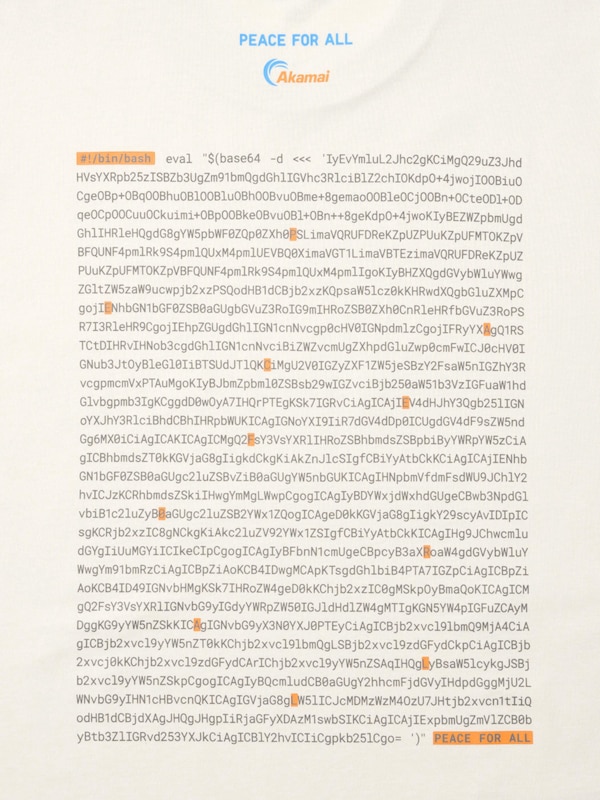 PEACE FOR ALL
Akamai
#!/bin/bash eval "$(base64 -d <<< 'IyEvYmluL2Jhc2gKCiMgQ29uZ3Jhd
HVsYXRpb25zISBZb3UgZm91bmQgdGhlIGVhc3RlciBlZ2chIOKdpO+4jwojIOOBiuO
CgeOBp+OBqOOBhuOBlOOBluOBhOOBvuOBme+8gemaoOOBleOCjOOBn+OCteODl+OD
qeOCpOOCuuOCkuimi+OBpOOBkeOBvuOBl+OBn++8geKdpO+4jwoKIyBEZWZpbmUgd
GhlIHRleHQgdG8gYW5pbWF0ZQp0ZXh0PSLimaVQRUFDReKZpUZPUuKZpUFMTOKZpV
BFQUNF4pmlRk9S4pmlQUxM4pmlUEVBQ0XimaVGT1LimaVBTEzimaVQRUFDReKZpUZ
PUuKZpUFMTOKZpVBFQUNF4pmlRk9S4pmlQUxM4pmlIgoKIyBHZXQgdGVybWluYWwg
ZGltZW5zaW9ucwpjb2xzPSQodHB1dCBjb2xzKQpsaW5lcz0kKHRwdXQgbGluZXMpC
gojIENhbGN1bGF0ZSB0aGUgbGVuZ3RoIG9mIHRoZSB0ZXh0CnRleHRfbGVuZ3RoPS
R7I3RleHR9CgojIEhpZGUgdGhlIGN1cnNvcgp0cHV0IGNpdmlzCgojIFRyYXAgQ1RS
TCtDIHRvIHNob3cgdGhlIGN1cnNvciBiZWZvcmUgZXhpdGluZwp0cmFwICJ0cHV0I
GNub3JtOyBleGl0IiBTSUdJTlQKCiMgU2V0IGZyZXF1ZW5jeSBzY2FsaW5nIGZhY3R
vcgpmcmVxPTAuMgoKIyBJbmZpbml0ZSBsb29wIGZvciBjb250aW51b3VzIGFuaW1hd
Glvbgpmb3IgKCggdD0wOyA7IHQrPTEgKSk7IGRvCiAgICAjIEV4dHJhY3Qgb25lIGN
oYXJhY3RlciBhdCBhIHRpbWUKICAgIGNoYXI9IiR7dGV4dDp0ICUgdGV4dF9sZW5nd
Gg6MX0iCiAgICAKICAgICMgQ2FsY3VsYXRlIHRoZSBhbmdsZSBpbiByYWRpYW5zCiA
gICBhbmdsZT0kKGVjaG8gIigkdCkgKiAkZnJlcSIgfCBiYyAtbCkKCiAgICAjIENhb
GN1bGF0ZSB0aGUgc2luZSBvZiB0aGUgYW5nbGUKICAgIHNpbmVfdmFsdWU9JChlY2
hvICJzKCRhbmdsZSkiIHwgYmMgLWwpCgogICAgIyBDYWxjdWxhdGUgeCBwb3NpdGl
vbiB1c2luZyB0aGUgc2luZSB2YWx1ZQogICAgeD0kKGVjaG8gIigkY29scyAvIDIpIC
sgKCRjb2xzIC8gNCkgKiAkc2luZV92YWx1ZSIgfCBiYyAtbCkKICAgIHg9JChwcmlu
dGYgIiUuMGYiICIkeCIpCgogICAgIyBFbnN1cmUgeCBpcyB3aXRoaW4gdGVybWluYW
wgYm91bmRzCiAgICBpZiAoKCB4IDwgMCApKTsgdGhlbiB4PTA7IGZpCiAgICBpZi
AoKCB4ID49IGNvbHMgKSk7IHRoZW4geD0kKChjb2xzIC0gMSkpOyBmaQoKICAgICM
gQ2FsY3VsYXRlIGNvbG9yIGdyYWRpZW50IGJldHdlZW4gMTIgKGN5YW4pIGFuZCAyM
DggKG9yYW5nZSkKICAgIGNvbG9yX3N0YXJ0PTEyCiAgICBjb2xvcl9lbmQ9MjA4CiA
gICBjb2xvcl9yYW5nZT0kKChjb2xvcl9lbmQgLSBjb2xvcl9zdGFydCkpCiAgICBjb
2xvcj0kKChjb2xvcl9zdGFydCArIChjb2xvcl9yYW5nZSAqIHQgLyBsaW5lcykgJSBj
b2xvcl9yYW5nZSkpCgogICAgIyBQcmludCB0aGUgY2hhcmFjdGVyIHdpdGggMjU2L
WNvbG9yIHN1cHBvcnQKICAgIGVjaG8gLW5lICJcMDMzWzM4OzU7JHtjb2xvcn1tIiQ
odHB1dCBjdXAgJHQgJHgpIiRjaGFyXDAzM1swbSIKCiAgICAjIExpbmUgZmVlZCB0b
yBtb3ZlIGRvd253YXJkCiAgICBlY2hvICIiCgpkb25lCgo= ')" PEACE FOR ALL